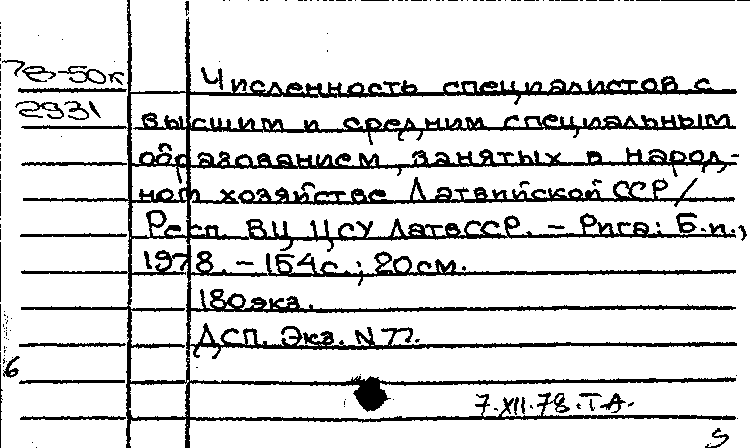 78-50к
2931
Численность специалистов с
высшим и средним специальным
образованием, занятых в народ-
ном хозяйстве Латвийской ССР /
Респ. ВЦ ЦСУ ЛатвССР. – Рига: Б.и.,
1978. – 154с.; 20см.
180экз.
ДСП. Экз. N 77.
6
7.XII.78. Т.А.